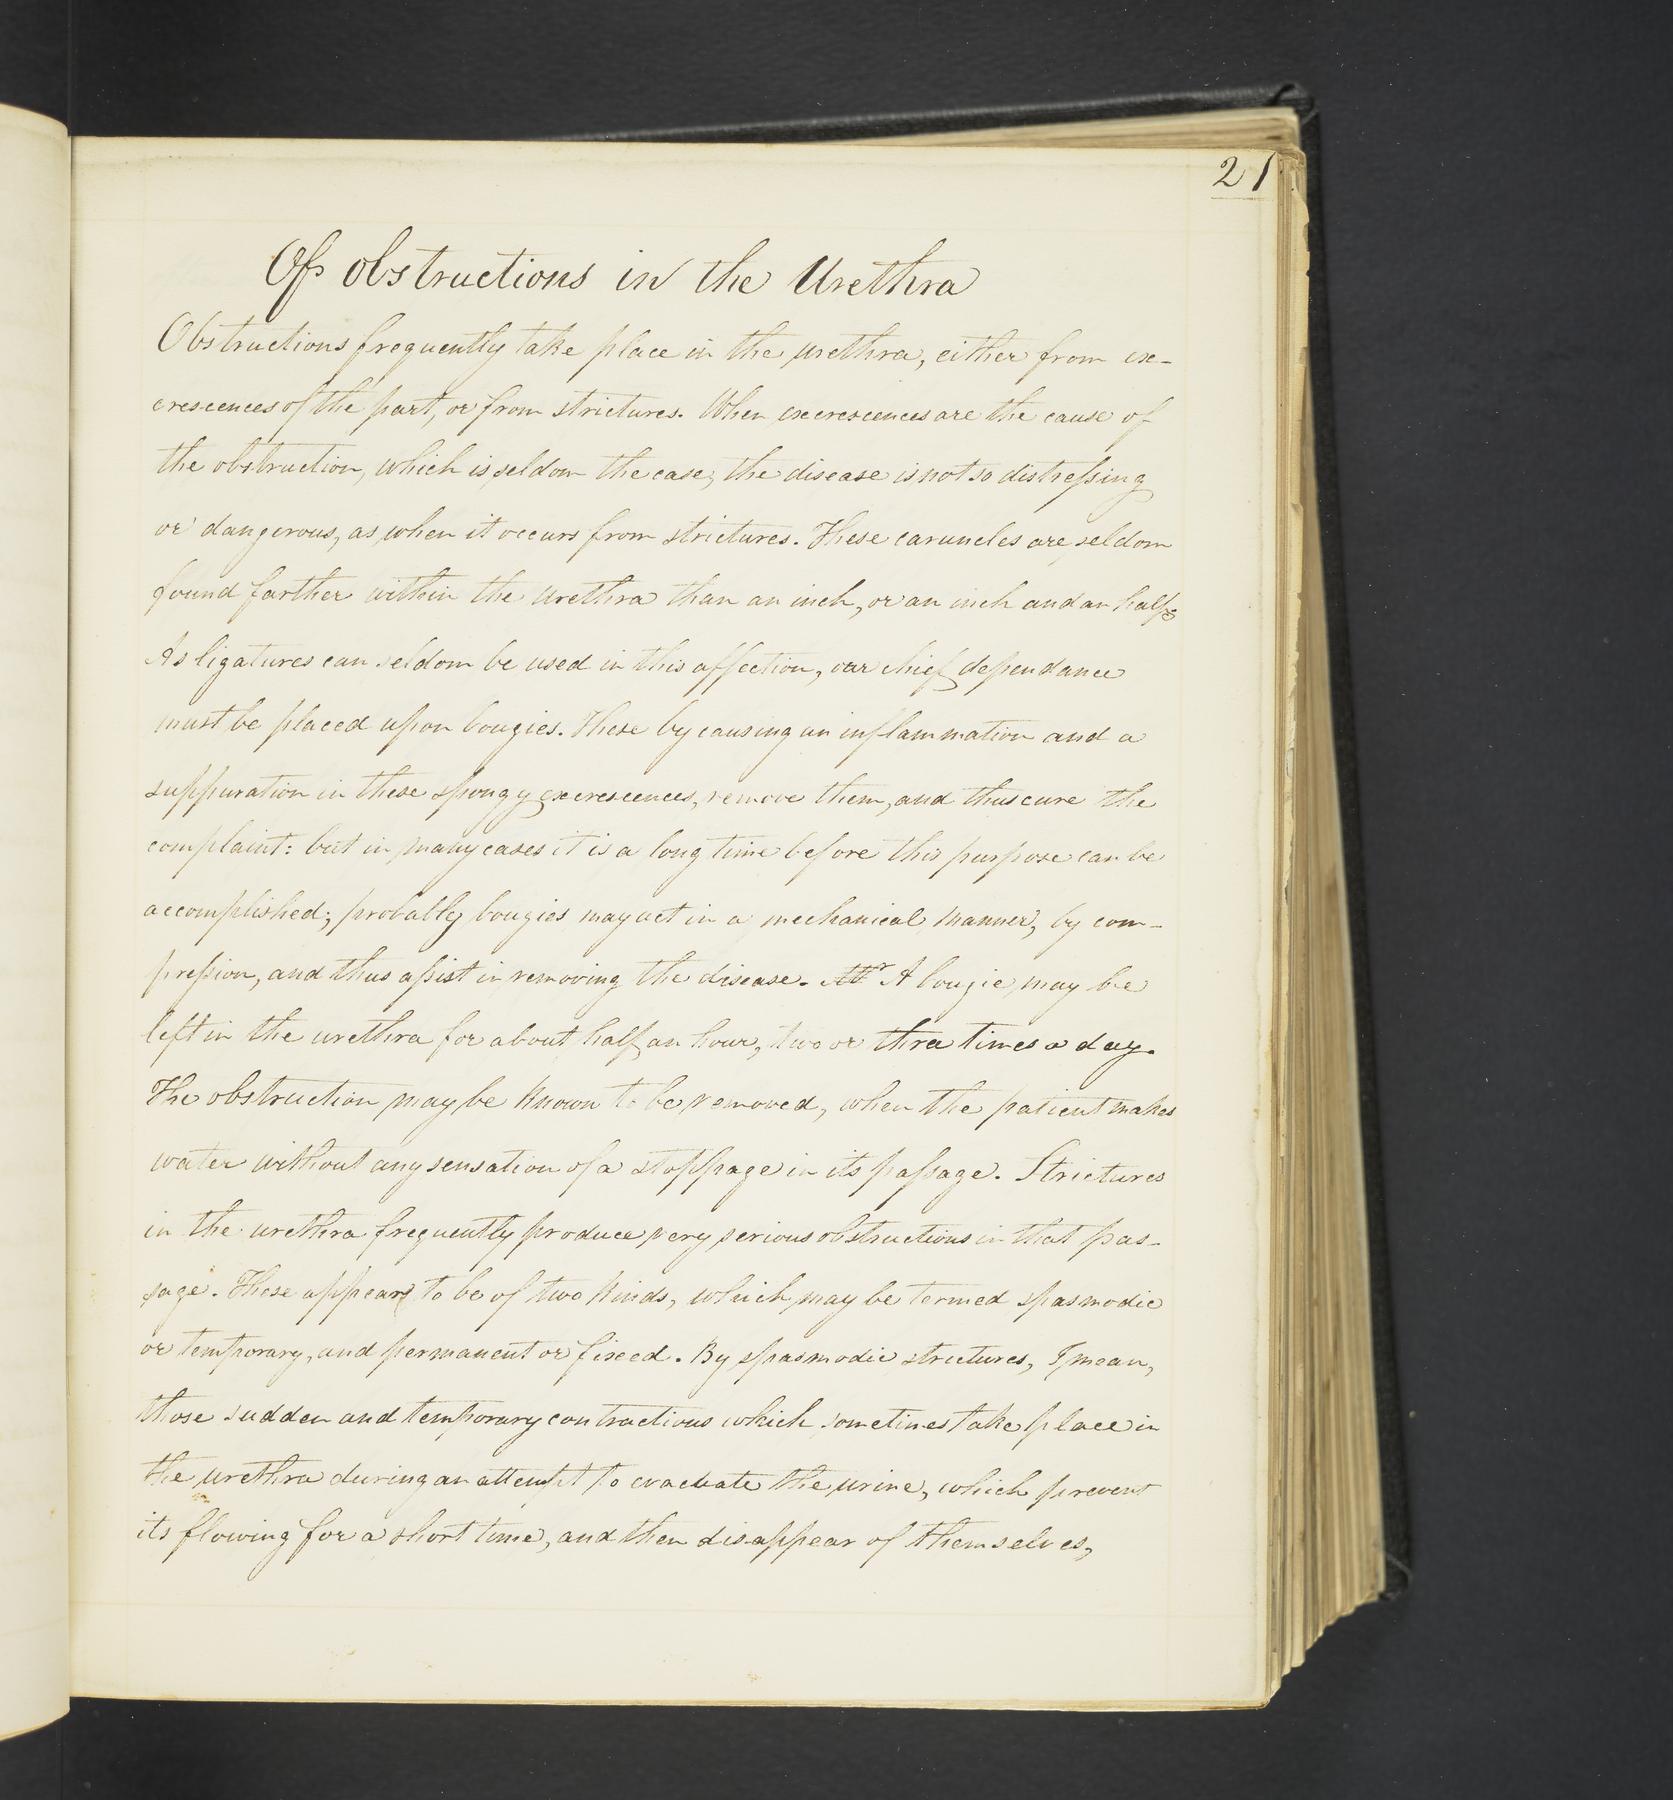 21
Of obstructions in the Urethra
Obstructions frequently take place in the urethra, either from ex-
crescences of the part, or from strictures. When excrescences are the cause of
the obstruction, which is seldom the case, the disease is not so distreſsing
or dangerous, as when it occurs from strictures. These caruncles are seldom
found farther within the urethra than an inch, or an inch and an half.
As ligatures can seldom be used in this affection, our chief dependance
must be placed upon bougies. These by causing an inflammation and a
suppuration in these spongy excrescences, remove them, and thus cure the
complaint: but in many cases it is a long time before this purpose can be
accomplished; probably bougies may act in a mechanical manner, by com-
preſsion, and thus aſsist in removing the disease. A bougie may be
left in the urethra for about half an hour, two or three times a day.
The obstruction may be known to be removed, when the patient makes
water without any sensation of a stoppage in its paſsage. Strictures
in the urethra frequently produce very serious obstructions in that pas-
sage. These appear to be of two kinds, which may be termed spasmodic
or temporary, and permanent or fixed. By spasmodic strictures, I mean,
those sudden and temporary contractions which sometimes take place in
the urethra during an attempt to evacuate the urine, which prevent
its flowing for a short time, and then disappear of themselves,